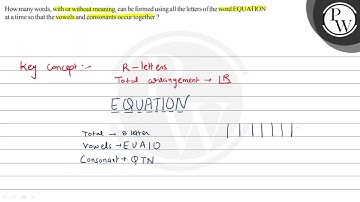 How many words, with or without meaning, can be formed using all the letters of the word EQUATION
at a time so that the vowels and consonants occur together ?
Key Concept :- R - letters
Total arrangement → ⌊R
EQUATION
Total → 8 letter
Vowels → EUAIO
Consonant → QTN